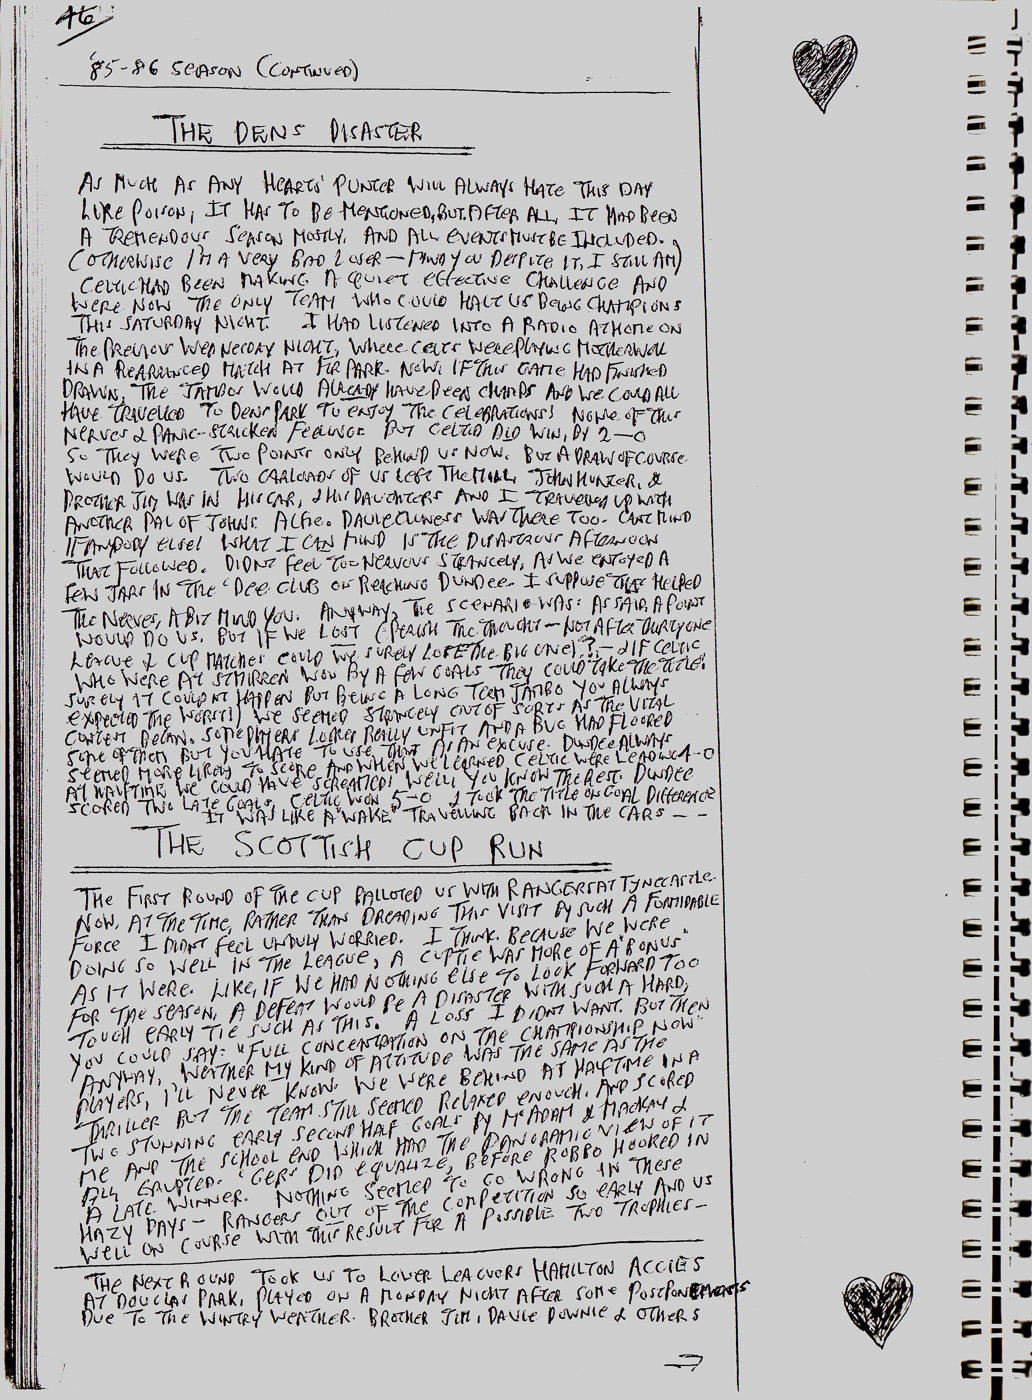 46
'85-86 SEASON (CONTINUED)
THE DENS DISASTER
AS MUCH AS ANY HEARTS' PUNTER WILL ALWAYS HATE THIS DAY
LIKE POISON, IT HAS TO BE MENTIONED, BUT AFTER ALL, IT HAD BEEN
A TREMENDOUS SEASON MOSTLY, AND ALL EVENTS MUST BE INCLUDED.
(OTHERWISE I'M A VERY BAD LOSER - MIND YOU DESPITE IT, I STILL AM)
CELTIC HAD BEEN MAKING A QUIET EFFECTIVE CHALLENGE AND
WERE NOW THE ONLY TEAM WHO COULD HALT US BEING CHAMPIONS
THIS SATURDAY NIGHT. I HAD LISTENED INTO A RADIO AT HOME ON
THE PREVIOUS WEDNESDAY NIGHT, WHERE CELTS WERE PLAYING MOTHERWELL
IN A REARRANGED MATCH AT FIR PARK. NOW, IF THIS GAME HAD FINISHED
DRAWN, THE JAMBOS WOULD ALREADY HAVE BEEN CHAMPS AND WE COULD ALL
HAVE TRAVELLED TO DENS PARK TO ENJOY THE CELEBRATIONS! NONE OF THIS
NERVES & PANIC-STRICKEN FEELINGS BUT CELTIC DID WIN, BY 2-0
SO THEY WERE TWO POINTS ONLY BEHIND US NOW. BUT A DRAW OF COURSE
WOULD DO US. TWO CARLOADS OF US LEFT THE MALL, JOHN HUNTER, &
BROTHER JIM WAS IN HIS CAR, & HIS DAUGHTERS AND I TRAVELLED UP WITH
ANOTHER PAL OF JOHNS ALFIE. DAVIE CLUNESS WAS THERE TOO. CANT MIND
IF ANYBODY ELSE! WHAT I CAN MIND IS THE DISASTROUS AFTERNOON
THAT FOLLOWED. DIDNT FEEL TOO NERVOUS STRANGELY, AS WE ENJOYED A
FEW JARS IN THE 'DEE CLUB ON REACHING DUNDEE. I SUPPOSE THAT HELPED
THE NERVES, A BIT MIND YOU. ANYWAY, THE SCENARIO WAS: AS SAID, A POINT
WOULD DO US. BUT IF WE LOST (PERISH THE THOUGHT - NOT AFTER THIRTY ONE
LEAGUE & CUP MATCHES COULD WE SURELY LOSE THE BIG ONE)!?. - & IF CELTIC
WHO WERE AT ST MIRREN WON BY A FEW GOALS THEY COULD TAKE THE TITLE!
SURELY IT COULDN'T HAPPEN BUT BEING A LONG TERM JAMBO YOU ALWAYS
EXPECTED THE WORST!) WE SEEMED STRANGELY OUT OF SORTS AS THE VITAL
CONTEST BEGAN. SOME PLAYERS LOOKED REALLY UNFIT AND A BUG HAD FLOORED
SOME OF THEM BUT YOU HATE TO USE THAT AS AN EXCUSE. DUNDEE ALWAYS
SEEMED MORE LIKELY TO SCORE AND WHEN WE LEARNED CELTIC WERE LEADING 4-0
AT HALFTIME WE COULD HAVE SCREAMED! WELL, YOU KNOW THE REST. DUNDEE
SCORED TWO LATE GOALS, CELTIC WON 5-0 & TOOK THE TITLE ON GOAL DIFFERENCE
IT WAS LIKE A "WAKE" TRAVELLING BACK IN THE CARS - -
THE SCOTTISH CUP RUN
THE FIRST ROUND OF THE CUP BALLOTED US WITH RANGERS AT TYNECASTLE.
NOW, AT THE TIME, RATHER THAN DREADING THIS VISIT BY SUCH A FORMIDABLE
FORCE I DIDNT FEEL UNDULY WORRIED. I THINK BECAUSE WE WERE
DOING SO WELL IN THE LEAGUE, A CUPTIE WAS MORE OF A 'BONUS'
AS IT WERE. LIKE, IF WE HAD NOTHING ELSE TO LOOK FORWARD TOO
FOR THE SEASON, A DEFEAT WOULD BE A DISASTER WITH SUCH A HARD,
TOUGH EARLY TIE SUCH AS THIS. A LOSS I DIDNT WANT. BUT THEN
YOU COULD SAY: "FULL CONCENTRATION ON THE CHAMPIONSHIP NOW"
ANYWAY, WEITHER MY KIND OF ATTITUDE WAS THE SAME AS THE
PLAYERS, I'LL NEVER KNOW. WE WERE BEHIND AT HALFTIME IN A
THRILLER BUT THE TEAM STILL SEEMED RELAXED ENOUGH. AND SCORED
TWO STUNNING EARLY SECOND HALF GOALS BY McADAM & MACKAY &
ME AND THE SCHOOL END WHICH HAD THE PANORAMIC VIEW OF IT
ALL ERUPTED. 'GERS DID EQUALIZE, BEFORE ROBBO HOOKED IN
A LATE WINNER. NOTHING SEEMED TO GO WRONG IN THESE
HAZY DAYS - RANGERS OUT OF THE COMPETITION SO EARLY AND US
WELL ON COURSE WITH THIS RESULT FOR A POSSIBLE TWO TROPHIES -
THE NEXT ROUND TOOK US TO LOWER LEAGUERS HAMILTON ACCIES
AT DOUGLAS PARK, PLAYED ON A MONDAY NIGHT AFTER SOME POSTPONEMENTS
DUE TO THE WINTRY WEATHER. BROTHER JIM, DAVIE DOWNIE & OTHERS